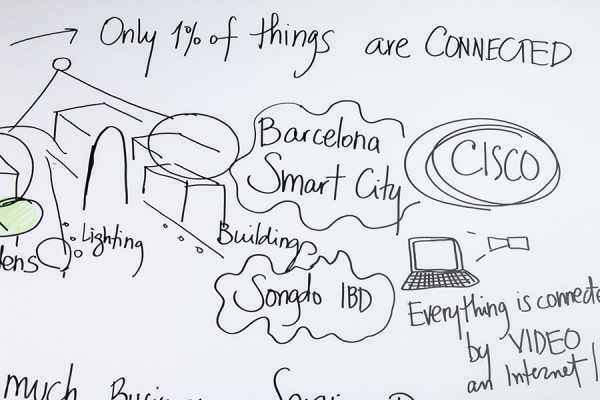 Only 1% of things are CONNECTED
Barcelona
Smart City
CISCO
Lighting
Buildings
Songdo IBD
Everything is connecte
by VIDEO
an Internet!
lens
much Business